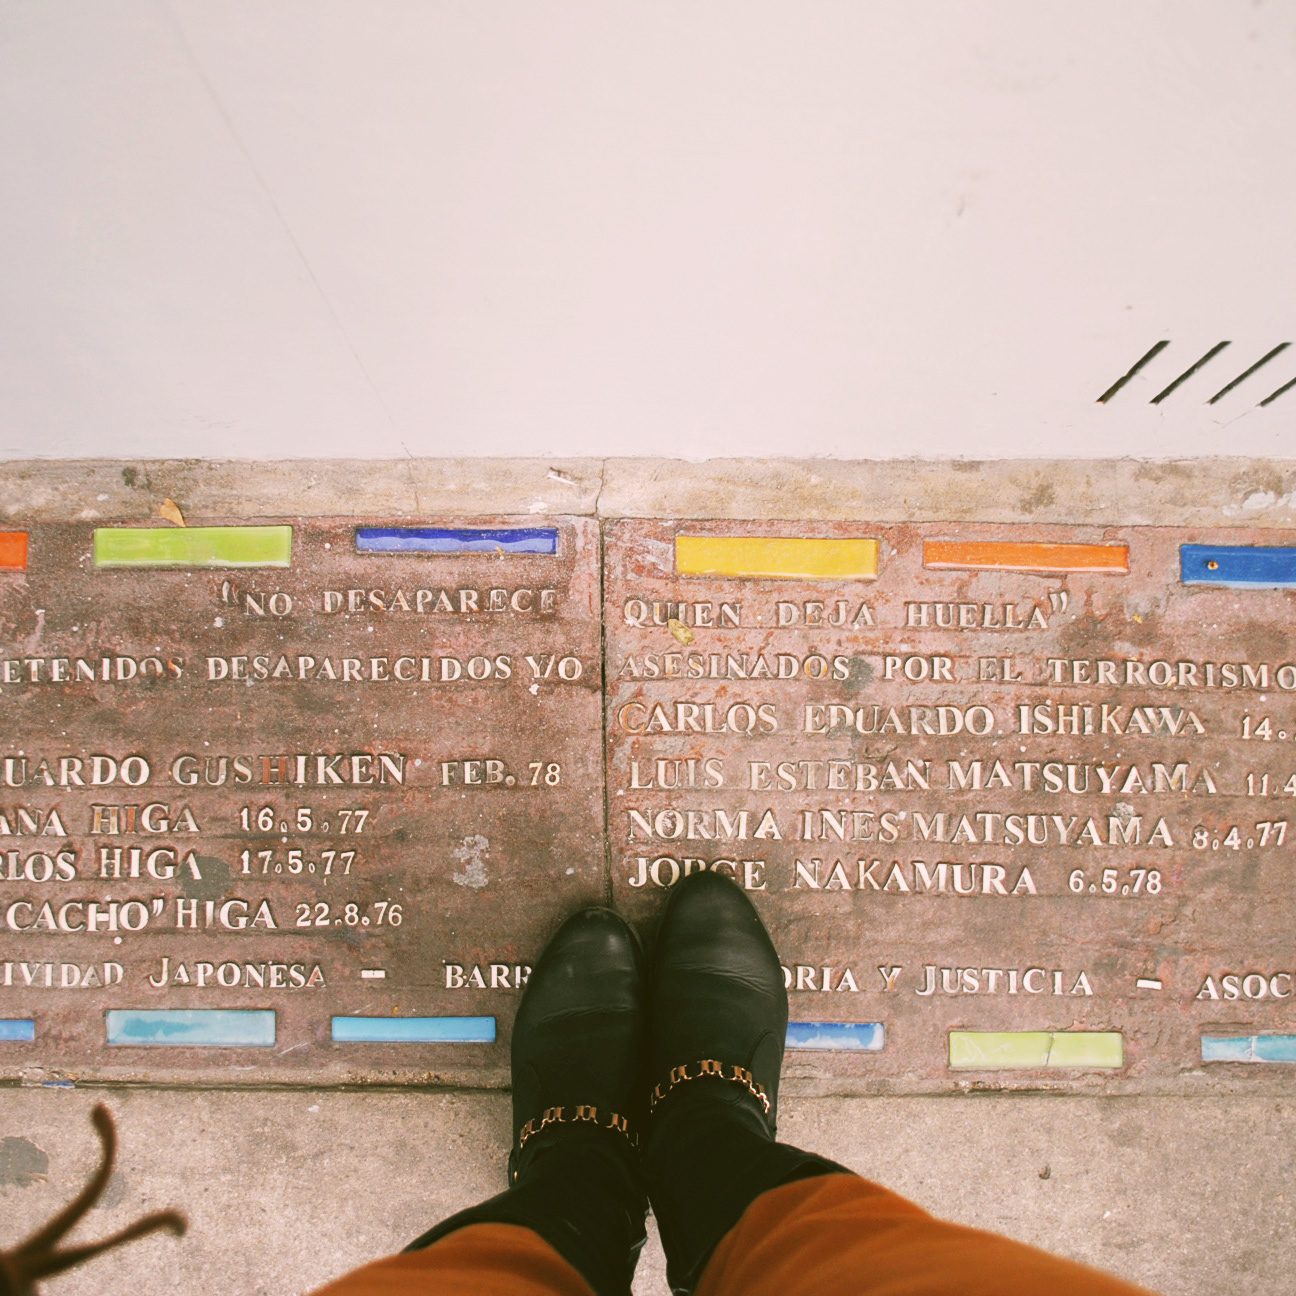 "NO DESAPARECE QUIEN DEJA HUELLA"
ETENIDOS DESAPARECIDOS Y/O ASESINADOS POR EL TERRORISMO
CARLOS EDUARDO ISHIKAWA 14.
UARDO GUSHIKEN FEB. 78 LUIS ESTEBAN MATSUYAMA 11.4
ANA HIGA 16.5.77 NORMA INES MATSUYAMA 8.4.77
RLOS HIGA 17.5.77 JORGE NAKAMURA 6.5.78
CACHO" HIGA 22.8.76
IVIDAD JAPONESA - BARR ORIA Y JUSTICIA - ASOC